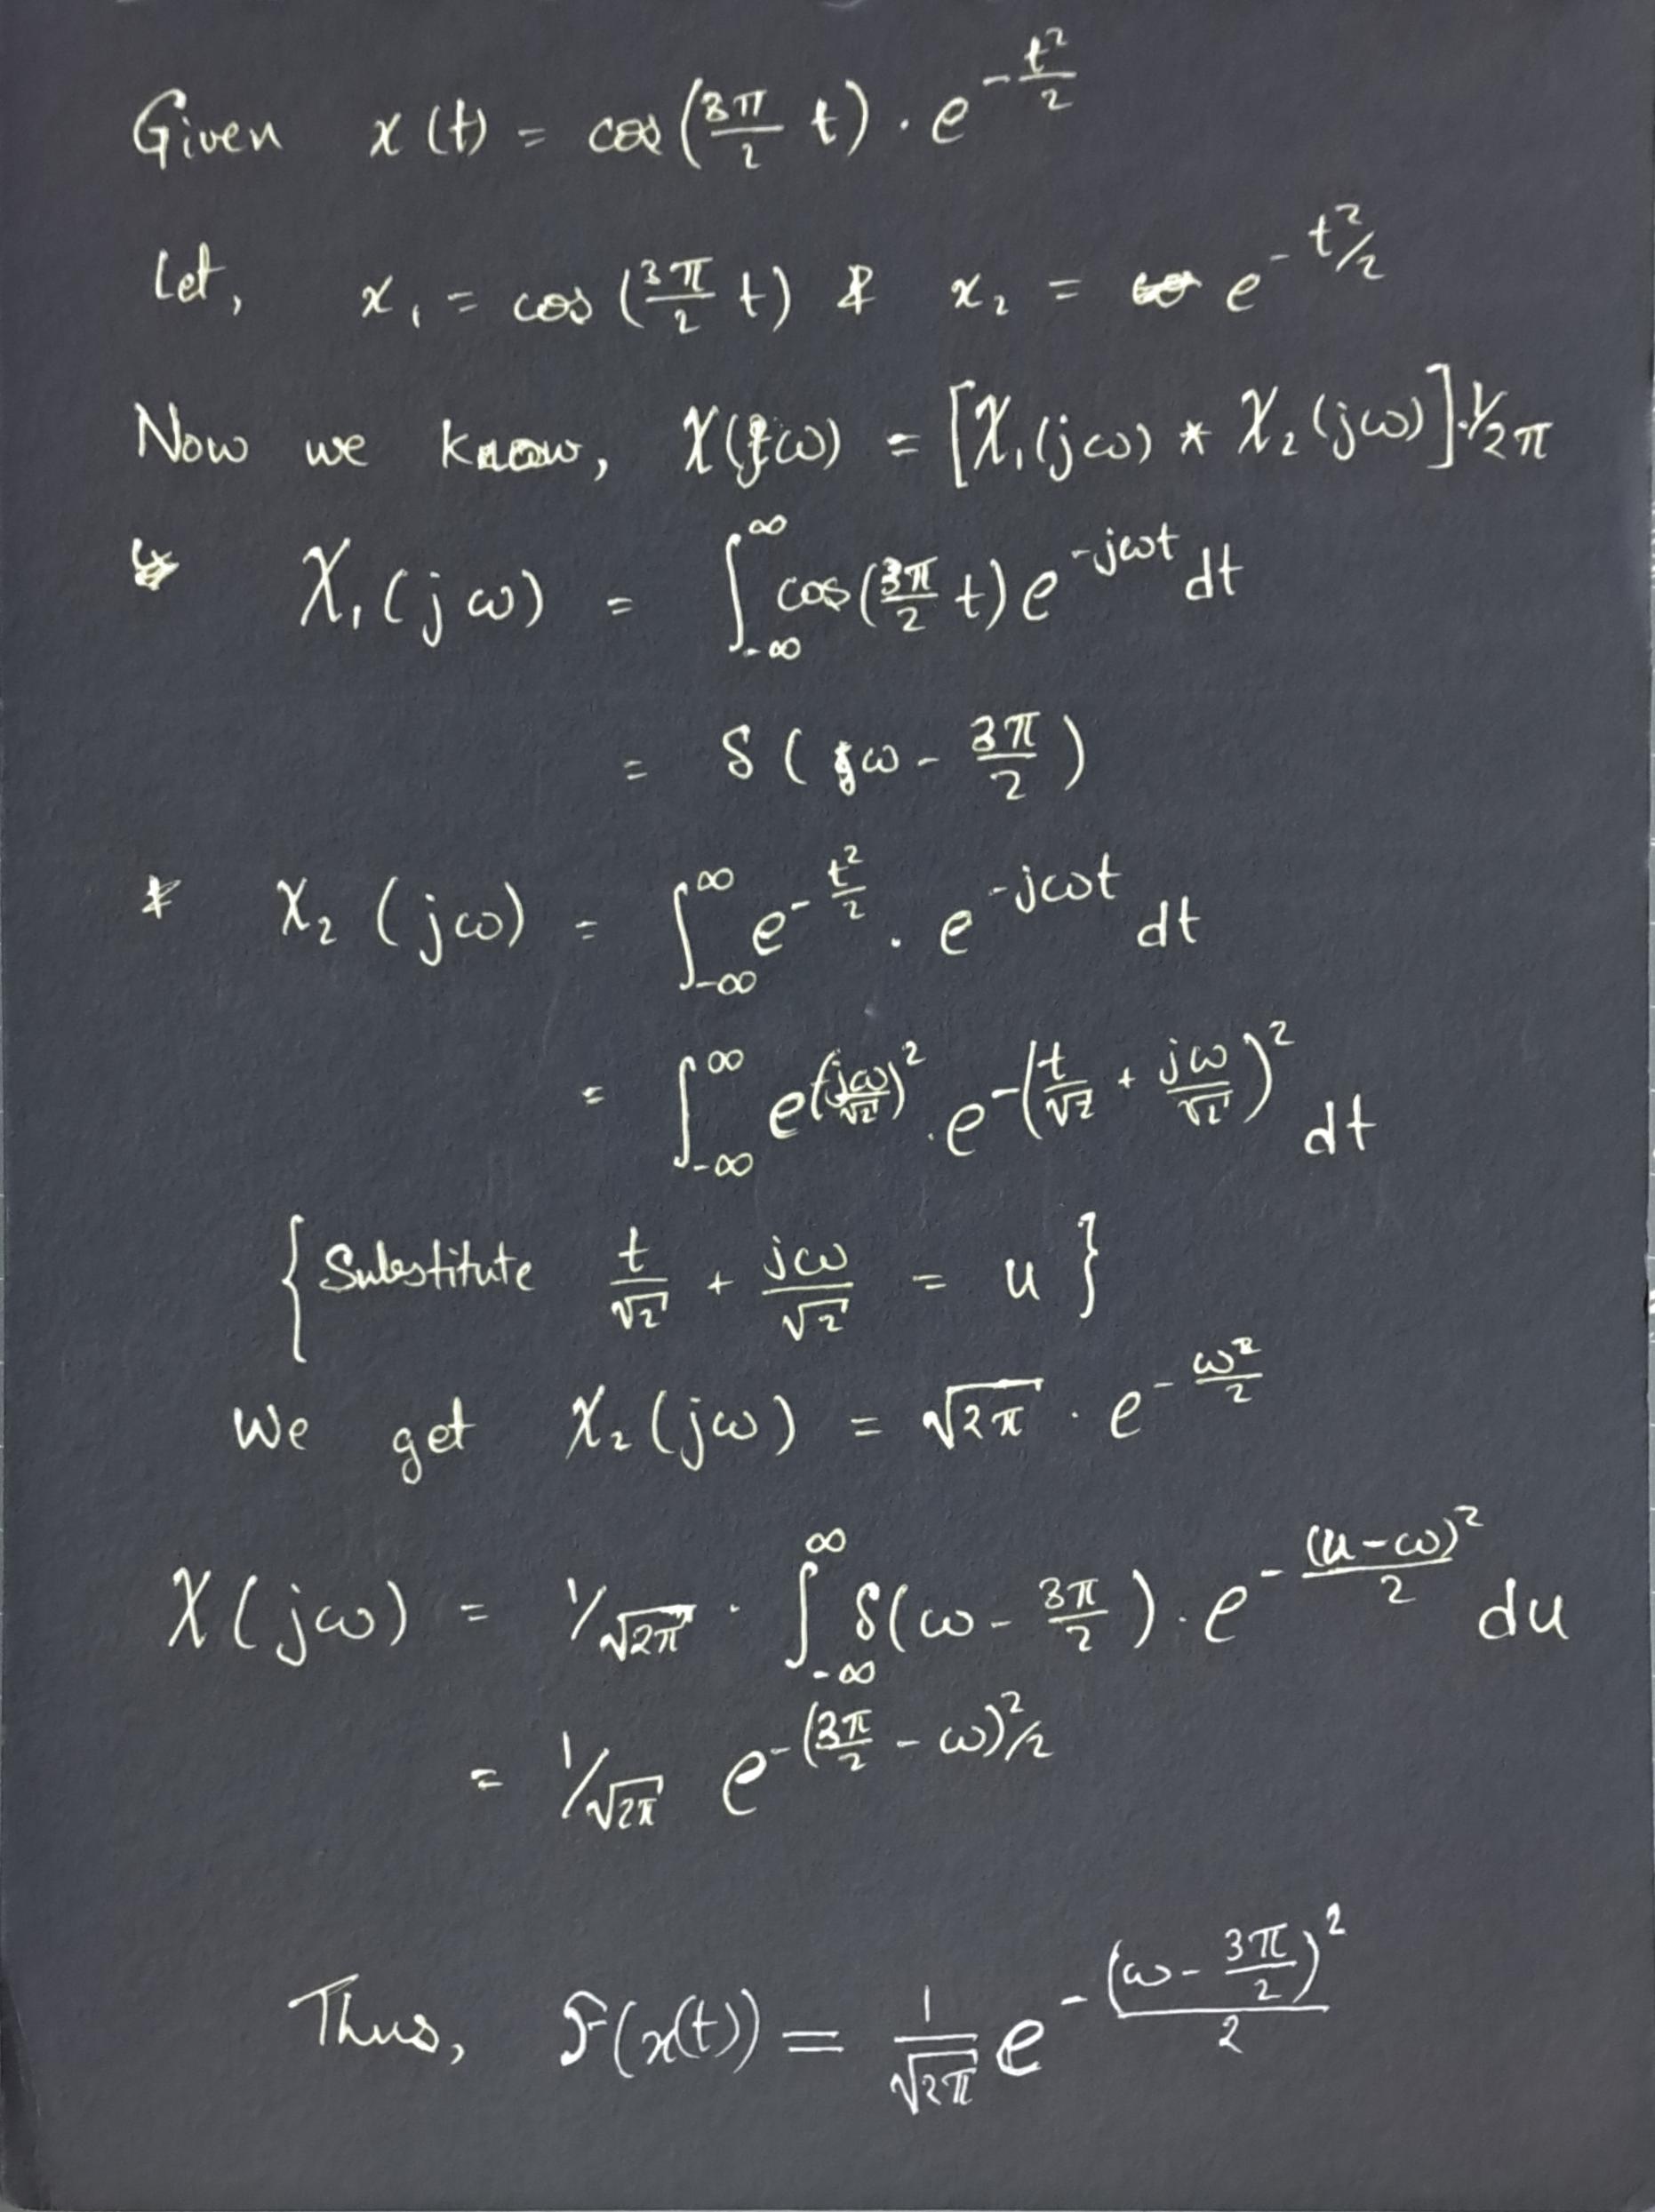 Given x(t) = cos(3π/2 t) . e^{-t²/2}
Let, x₁ = cos(3π/2 t) & x₂ = e^{-t²/2}
Now we know, X(jω) = [X₁(jω) * X₂(jω)].1/2π
X₁(jω) = ∫_{-∞}^{∞} cos(3π/2 t) e^{-jωt} dt
= δ(ω - 3π/2)
* X₂(jω) = ∫_{-∞}^{∞} e^{-t²/2} . e^{-jωt} dt
= ∫_{-∞}^{∞} e^{(jω/√2)²} . e^{-(t/√2 + jω/√2)²} dt
{Substitute t/√2 + jω/√2 = u}
We get X₂(jω) = √2π . e^{-ω²/2}
X(jω) = 1/√2π . ∫_{-∞}^{∞} δ(ω - 3π/2) . e^{-(u-ω)²/2} du
= 1/√2π e^{-(3π/2 - ω)²/2}
Thus, F(x(t)) = 1/√2π e^{-(ω - 3π/2)²/2}